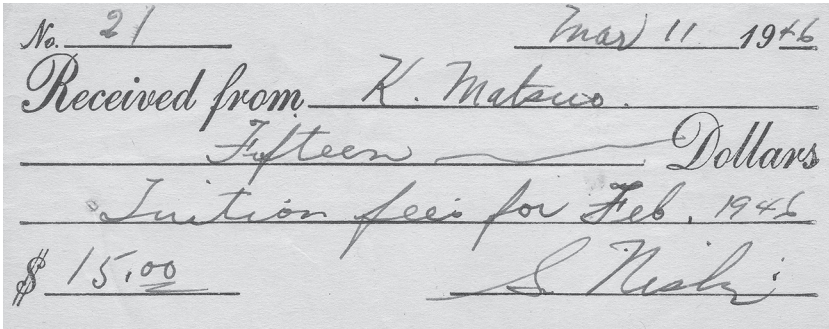 No. 21 Mar 11 1946
Received from K. Matsuo.
Fifteen Dollars
Tuition fees for Feb. 1946
$ 15.00 S. Nishi